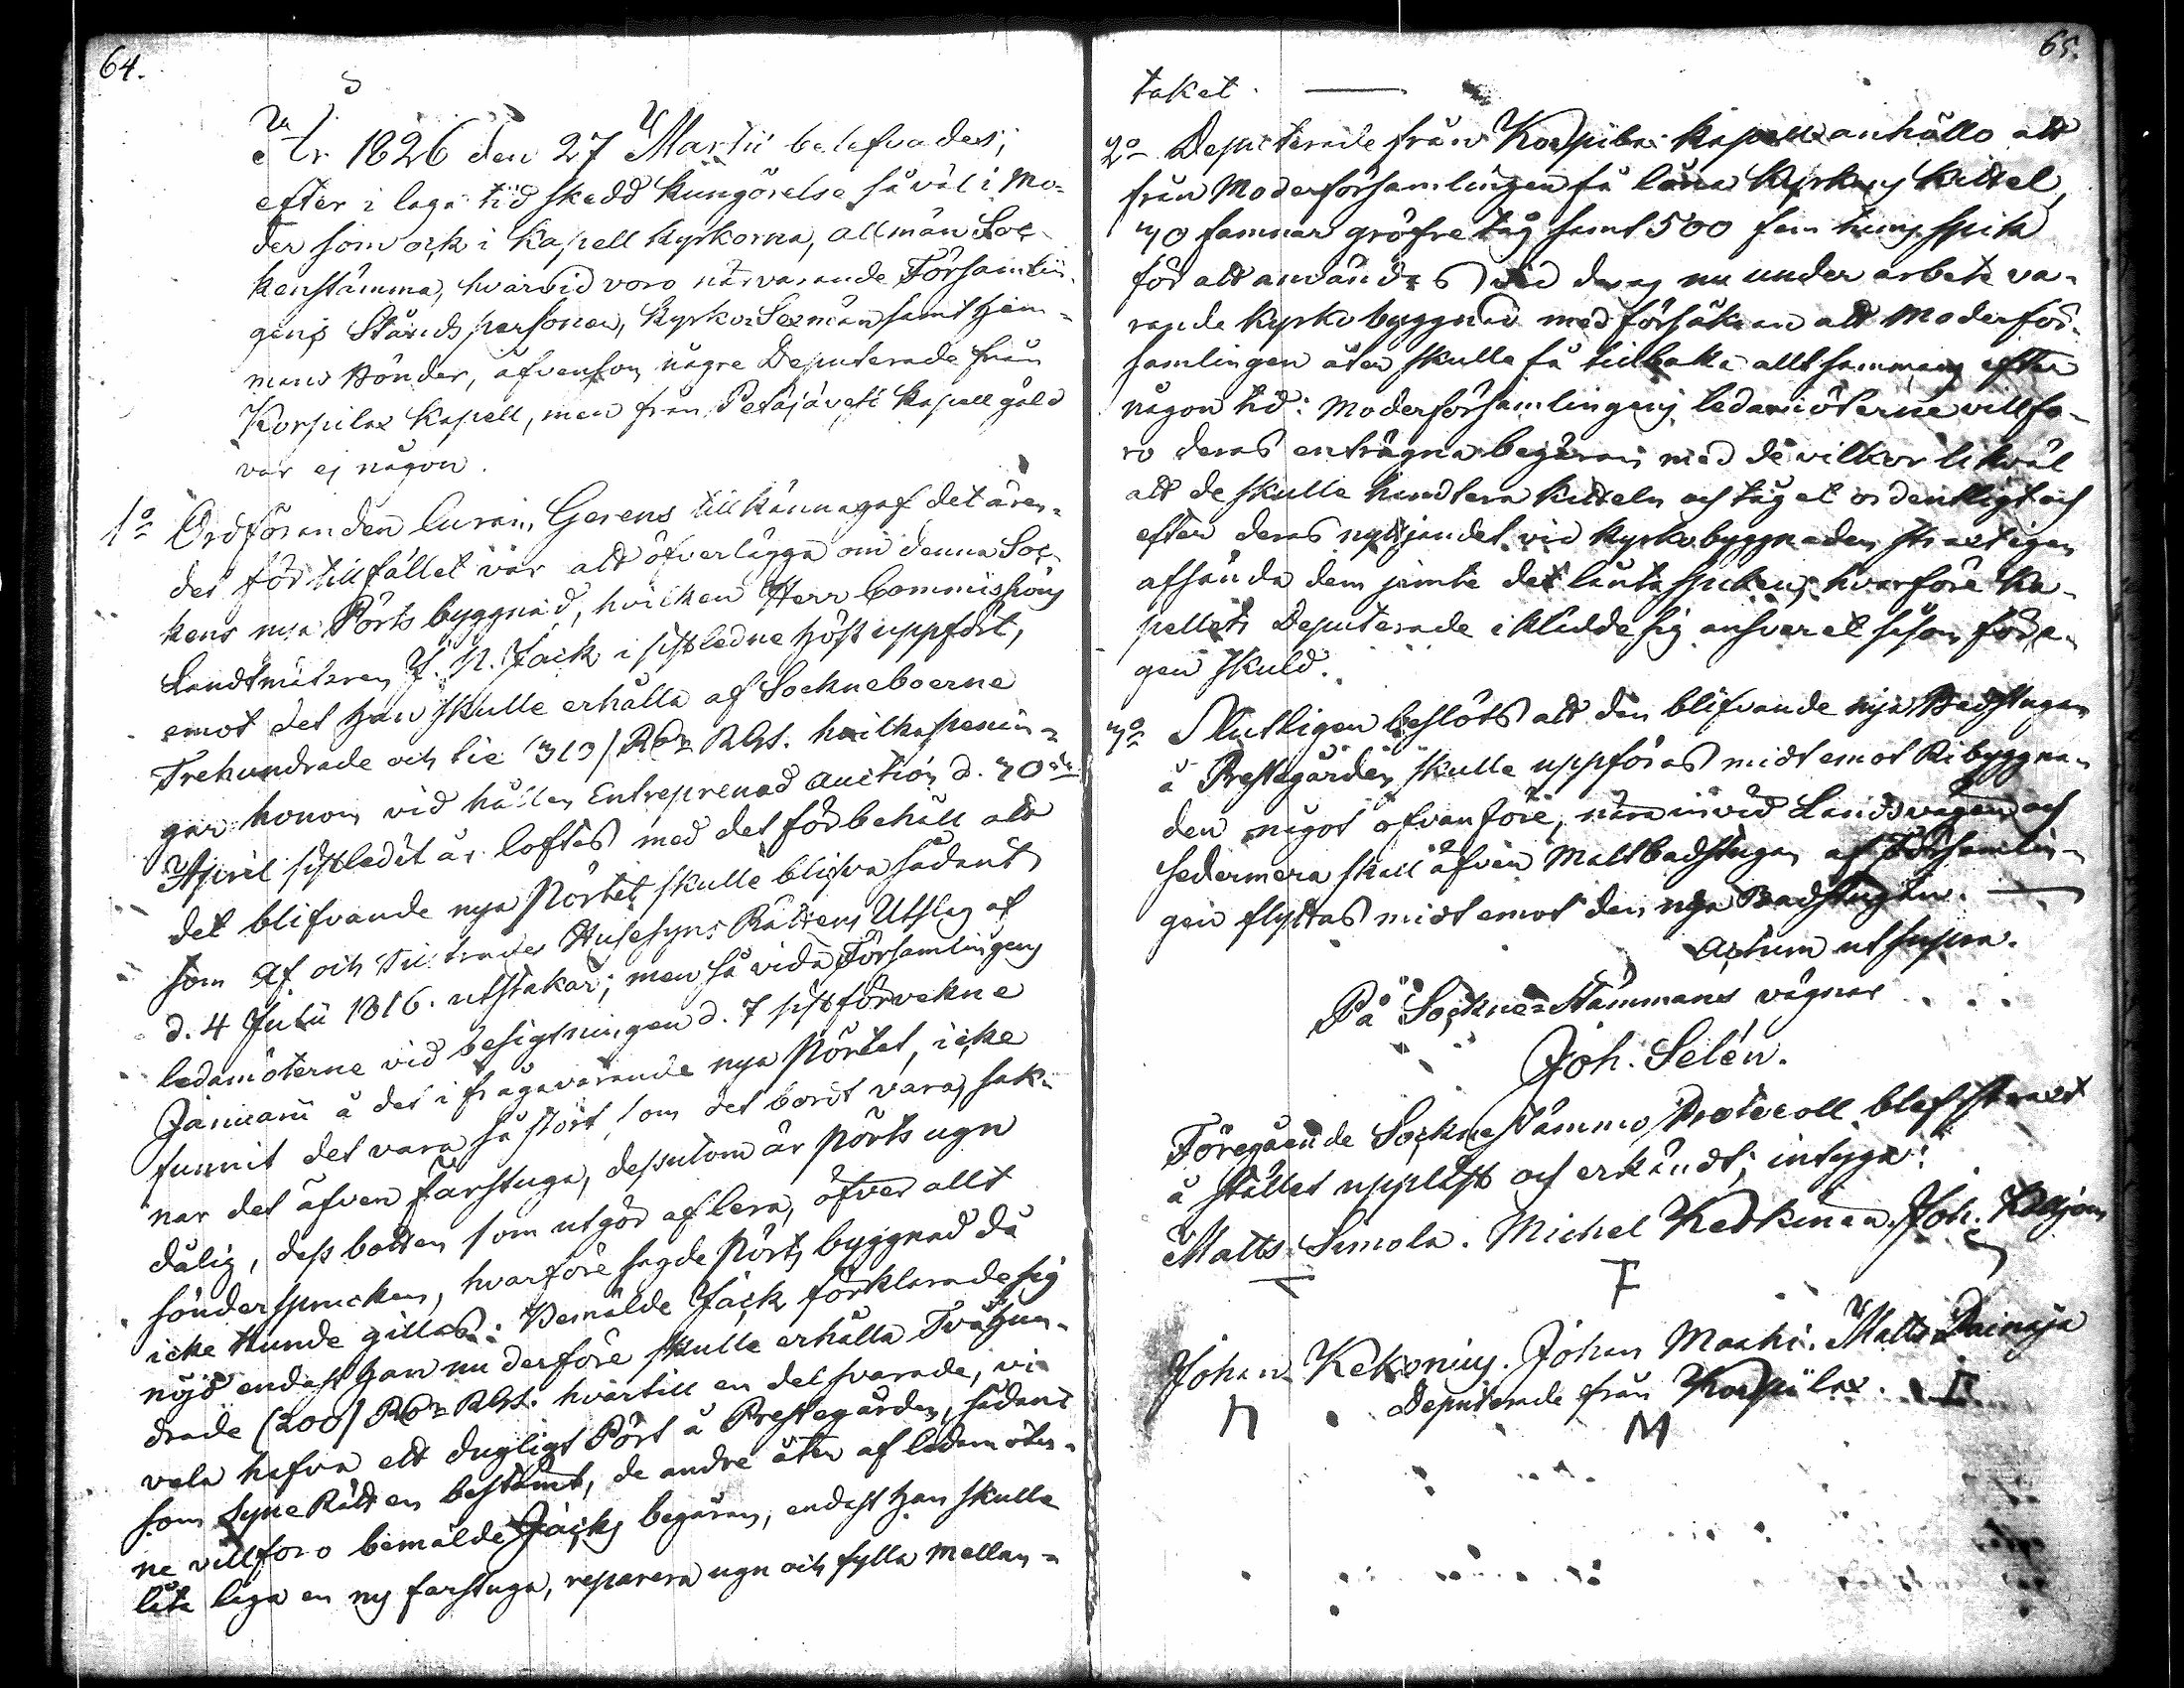 64.
År 1826 den 27 Martii belefvades,
efter i laga tid skedd kungörelse så väl i Mo-
der som ock i Kapell kyrkorna, allmän Soc-
kenstämma, hvarvid voro närvarande Församlin-
gens Ståndspersoner, Kyrko Sexmän samt Hem-
mans Bönder, äfvensom någre Deputerade från
Korpilax Kapell, men från Petäjävesi Kapell gäld
var ej någon.
1o Ordföranden Curam Gerens tillkännagaf det ären-
det för tillfället var att öfverlägga om denna Soc-
kens nya Pörts byggnad, hvilken Herr Commissions
Landtmätaren J. N. Jack i sistledne höst uppfört,
emot det han skulle erhålla af Sockneboerne
Trehundrade och tie (310) Rbr RGs. hvilka penin-
gar honom vid hållen Entreprenad auction d. 30de
April sistledit år loftas med det förbehåll att
det blifvande nya Pörtet skulle blifva sådant
som Af och Tilträdes Husesyns Rättens Utslag af
d. 4 Julii 1816. utstakar; men så vida Församlingens
ledamöterne vid besigtningen d. 7 sist förvekne
Januarii å det i fråga varande nya Pörtet, icke
funnit det vara så stort som det bordt vara, sak-
nar det äfven farstuga, dessutom är pörts ugn
dålig, dess botten som utgör af lera, öfver allt
sönder sprucken, hvarföre sagde Pörts byggnad då
icke kunde gillas: Bemälde Jack förklarade sig
nöjd endast han nu derföre skulle erhålla Tvåhun-
drade (200) Rbr RGs. hvartill en del svarade, vi
vela hafva ett dugligt Pört å Prestegården, sådant
som Syne Rätten bestämt, de andre åter af ledamöter-
ne villforo bemälde Jacks begäran, endast han skulle
låta laga en ny farstuga, reparera ugn och fylla mellan-
65.
taket.
2o Deputerade från Korpilax Kapell anhöllo att
från Moderförsamlingen få låna Kyrkans Kittel,
30 famnar gröfre tåg samt 500 fem tums spik
för att användas vid deras nu under arbete va-
rande Kyrko byggnad med försäkran att Moderför-
samlingen åter skulle få tillbaka allt sammans efter
någon tid: Moderförsamlingens ledamöterne villfo-
ro deras enträgna begäran med de vilkor likväl
att de skulle handtera kitteln och tåget ordentligt och
efter deras nyttjandet vid Kyrkobyggnaden straxt igen
afsända dem jemte det lånta spiken, hvarföre Ka-
pellets Deputerade iklädde sig ansvaret såsom för e-
gen skuld.
3o Slutligen beslöts att den blifvande nya Badstugan
å Prestegården skulle uppföras midt emot Ribyggna-
den något ofvanföre, nära invid Landsvägen och
sedermera skall äfven Maltbadstugan af Församlin-
gen flyttas midt emot den nya Badstugan.
Actum ut supra.
På Sockne-Stämmans vägnar
Joh. Selén.
Föregående Sockne stämmo Protocoll blef straxt
å stället uppläst och erkändt; intyga:
Matts Simola. Michel Kerkinen. Joh.
Johan Kekonius. Johan Maahi. Matts
Deputerade från Korpilax.
M